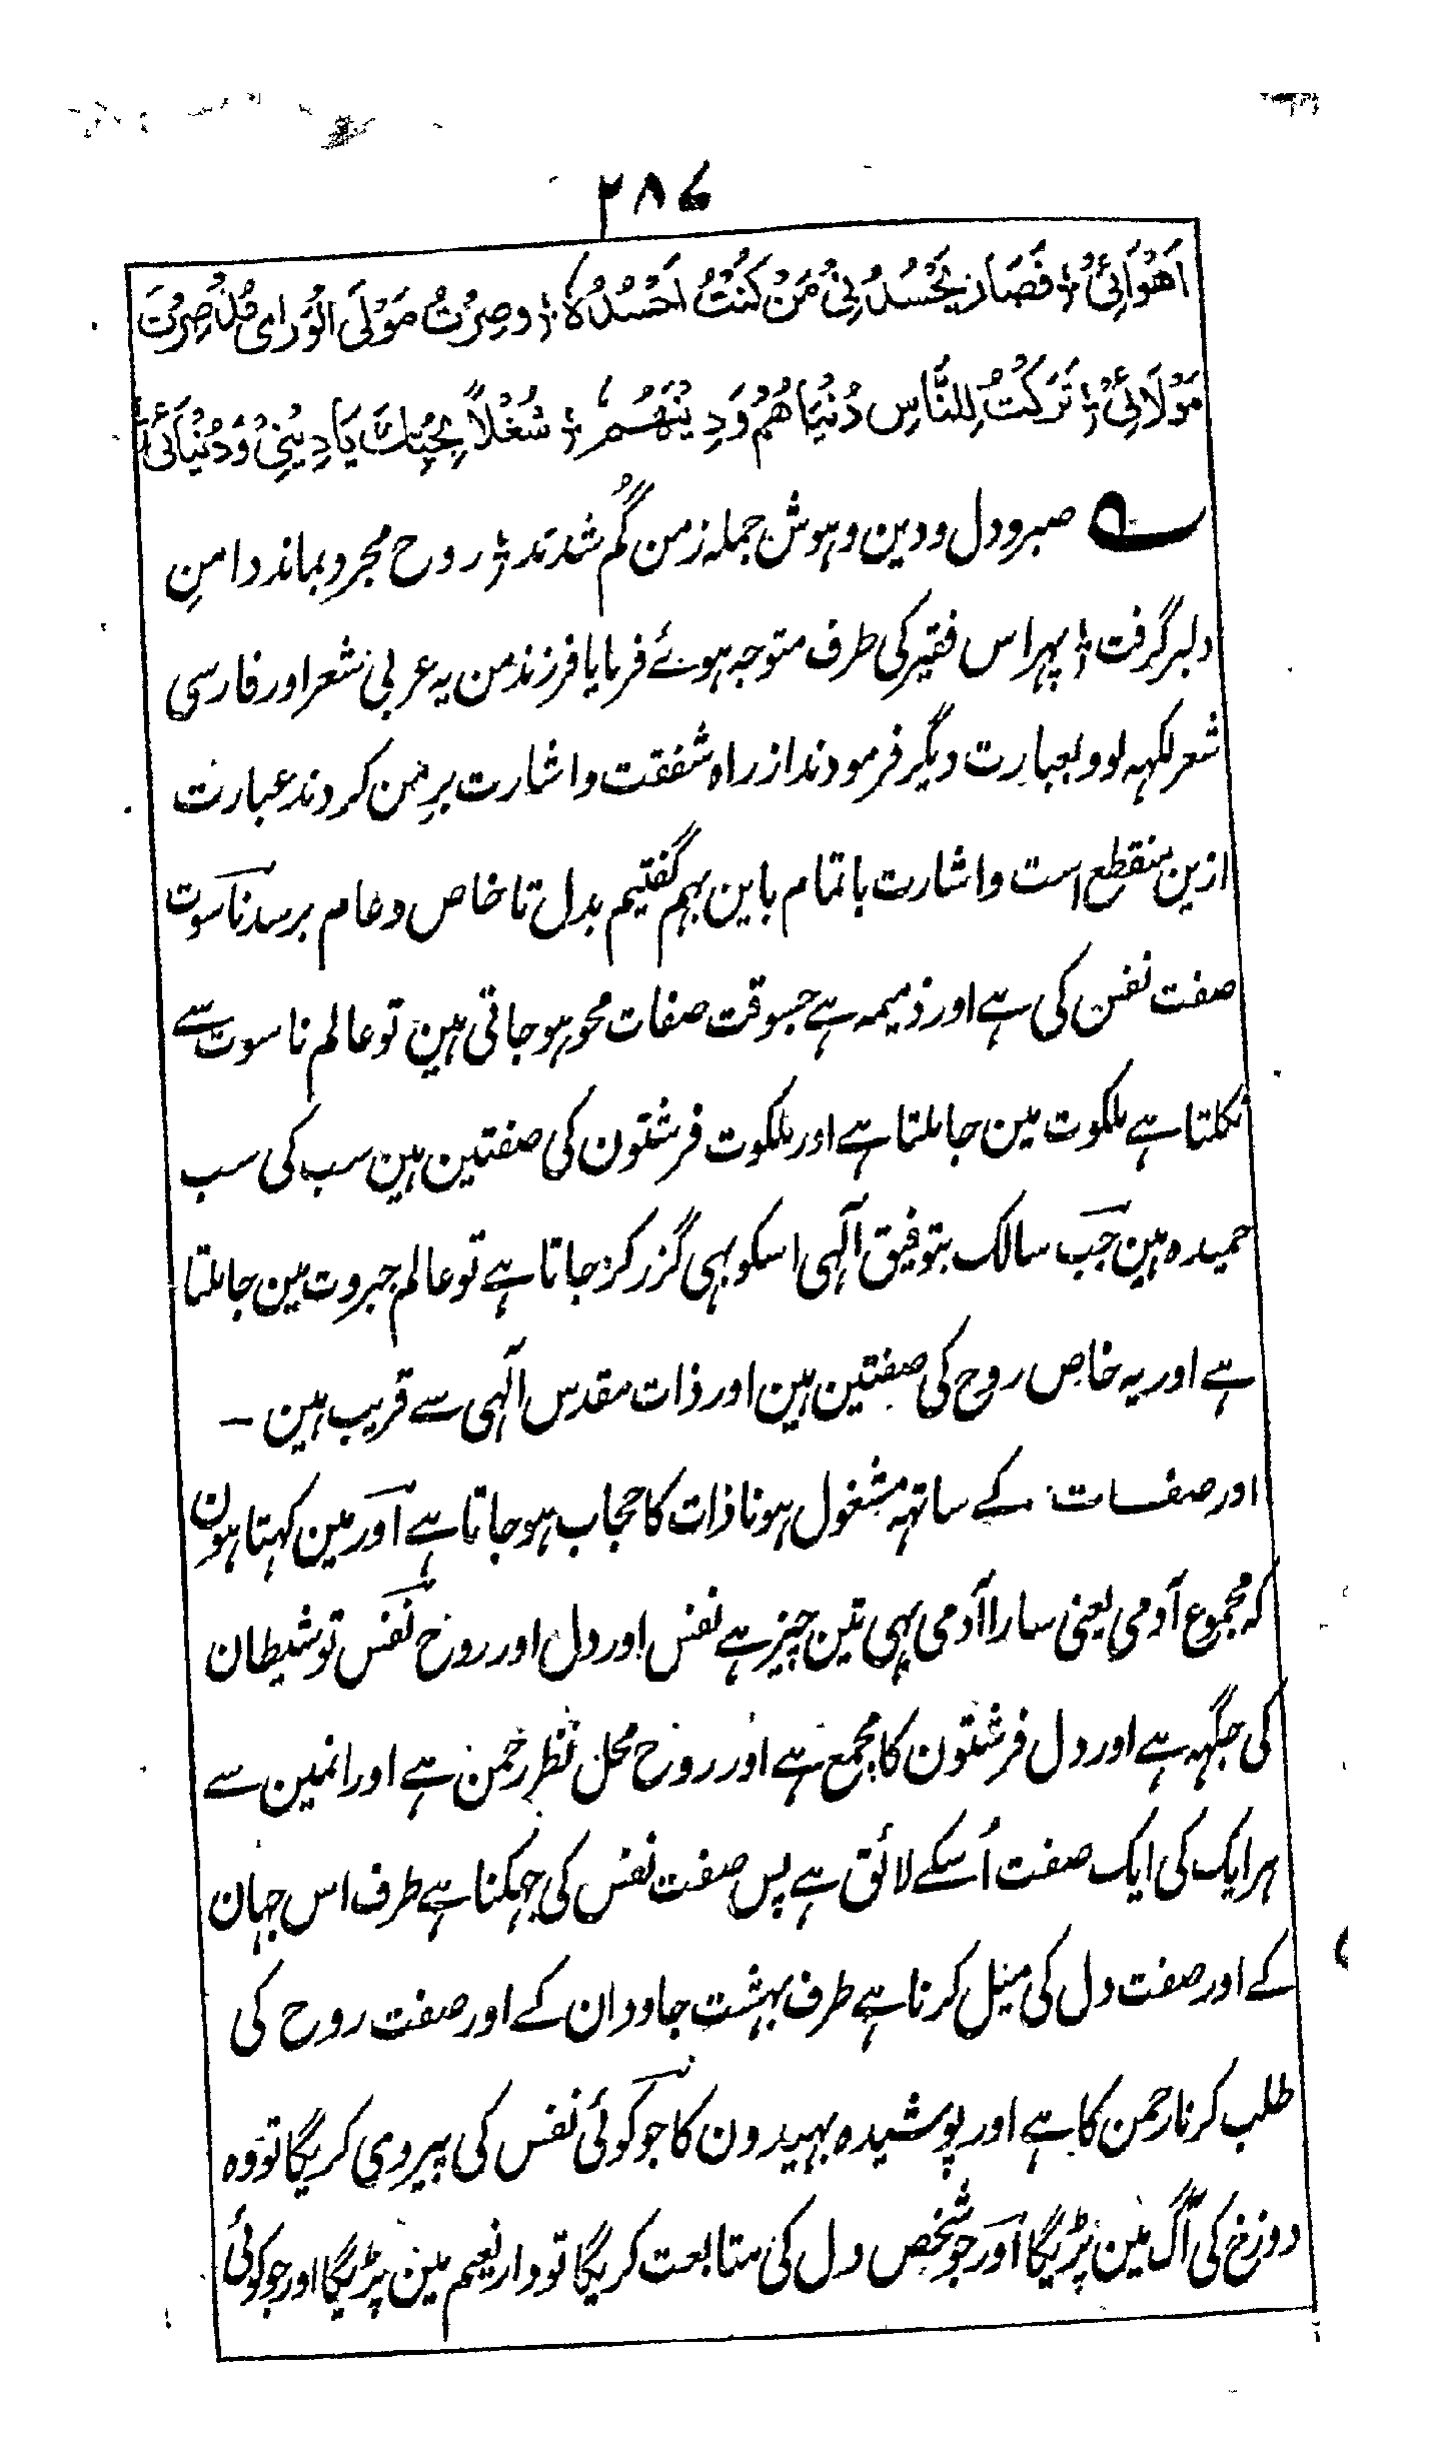 ۲۸۶
اَهْوَائِیْ ؛ فَصَارَ یَحْسُدُنِیْ مَنْ کُنْتُ اَحْسُدُهٗ ؛ وصِرْتُ مَوْلَی الْوَرٰی مُذْ صِرْتَ
مَوْلَائِیْ ؛ تَرَکْتُ لِلنَّاسِ دُنْیَاهُمْ وَدِیْنَهُمْ ؛ شُغْلاً بِحُبِّكَ یَا دِیْنِیْ وَدُنْیَائِیْ ؛
؎ صبر و دل و دین و ہوش جملہ ز من گُم شدند ؛ روح مجرد بماند دامنِ
دلبر گرفت ؛ پہر اس فقیر کی طرف متوجہ ہوئے فرمایا فرزند من یہ عربی شعر اور فارسی
شعر لکہہ لو و بعبارت دیگر فرمودند از راہ شفقت و اشارت بر من کردند عبارت
ازین منقطع است و اشارت با تمام باین بہم گفتیم بدل تا خاص و عام برسد ناسوت
صفت نفس کی ہے اور ذمیمہ ہے جسوقت صفات محو ہو جاتی ہین تو عالم ناسوت سے
نکلتا ہے ملکوت مین جا ملتا ہے اور ملکوت فرشتون کی صفتین ہین سب کی سب
حمیدہ ہین جب سالک بتوفیق آلہی اسکو بہی گزر کر جاتا ہے تو عالم جبروت مین جا ملتا
ہے اور یہ خاص روح کی صفتین ہین اور ذات مقدس آلہی سے قریب ہین ۔
اور صفات کے ساتہہ مشغول ہونا ذات کا حجاب ہو جاتا ہے اور مین کہتا ہون
کہ مجموع آدمی یعنی سارا آدمی یہی تین چیز ہے نفس اور دل اور روح نفس تو شیطان
کی جگہہ ہے اور دل فرشتون کا مجمع ہے اور روح محل نظر رحمن ہے اور انمین سے
ہر ایک کی ایک صفت اُسکے لائق ہے پس صفت نفس کی جہکنا ہے طرف اس جہان
کے اور صفت دل کی میل کرنا ہے طرف بہشت جاودان کے اور صفت روح کی
طلب کرنا رحمن کا ہے اور پوشیدہ بہیدون کا جو کوئی نفس کی پیروی کریگا تو وہ
دوزخ کی آگ مین پڑیگا اور جو شخص دل کی متابعت کریگا تو دار نعیم مین پڑیگا اور جو کوئی